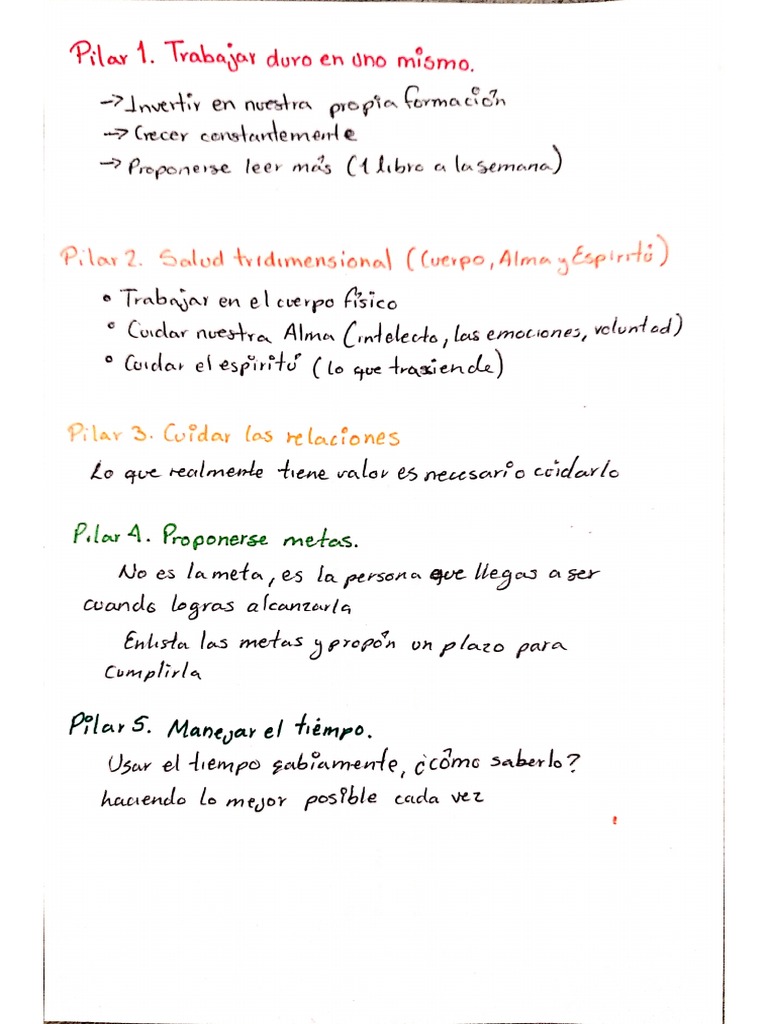 Pilar 1. Trabajar duro en uno mismo.
→ Invertir en nuestra propia formación
→ Crecer constantemente
→ Proponerse leer más (1 libro a la semana)
Pilar 2. Salud tridimensional (Cuerpo, Alma y Espiritú)
• Trabajar en el cuerpo físico
• Cuidar nuestra Alma (intelecto, las emociones, voluntad)
• Cuidar el espiritú (lo que trasiende)
Pilar 3. Cuidar las relaciones
Lo que realmente tiene valor es necesario cuidarlo
Pilar 4. Proponerse metas.
No es la meta, es la persona que llegas a ser
cuando logras alcanzarla
Enlista las metas y propón un plazo para
cumplirla
Pilar 5. Manejar el tiempo.
Usar el tiempo sabiamente, ¿cómo saberlo?
haciendo lo mejor posible cada vez